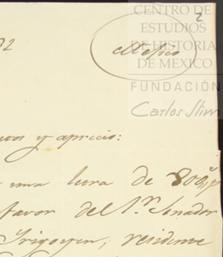 2
92 Mexico
CENTRO DE
ESTUDIOS
DE HISTORIA
DE MEXICO
FUNDACIÓN
Carlos Slim
y aprecio:
una letra de 800
favor del Sr. Senador
Irigoyen, residente